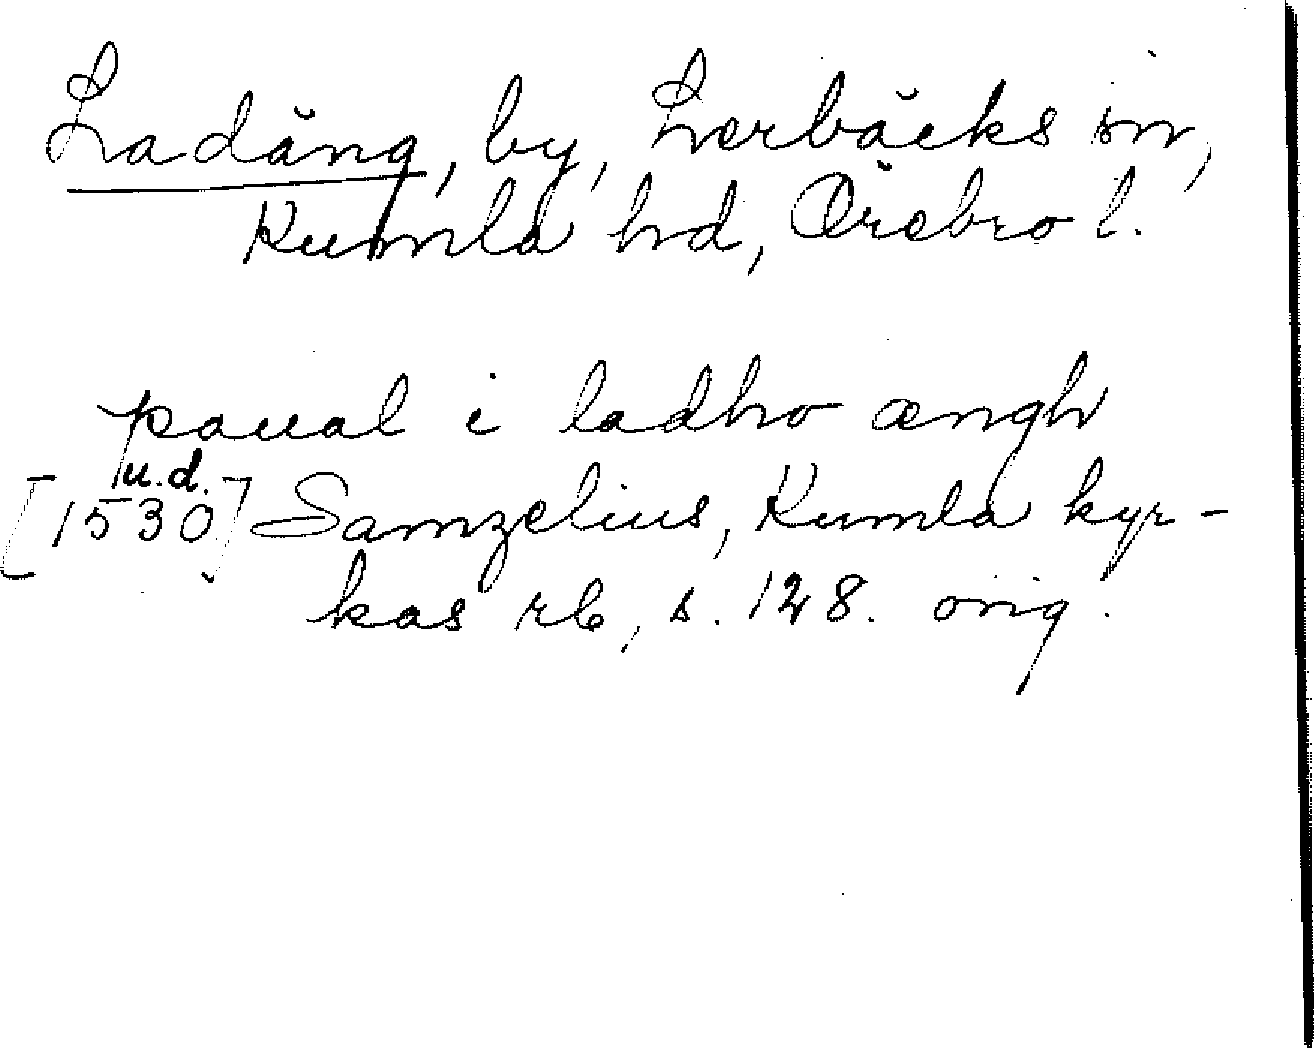 Ladäng, by, Lerbäcks sn,
Kumla hd, Örebro l.
paual i ladho ængh
u.d.
[1530] Samzelius, Kumla kyr-
kas rb, s. 128. orig.